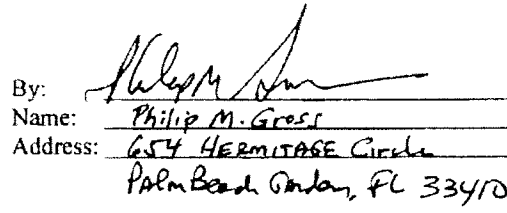 By: Philip M
Name: Philip M. Gross
Address: 654 HERMITAGE Circle
Palm Beach Gardens, FL 33410